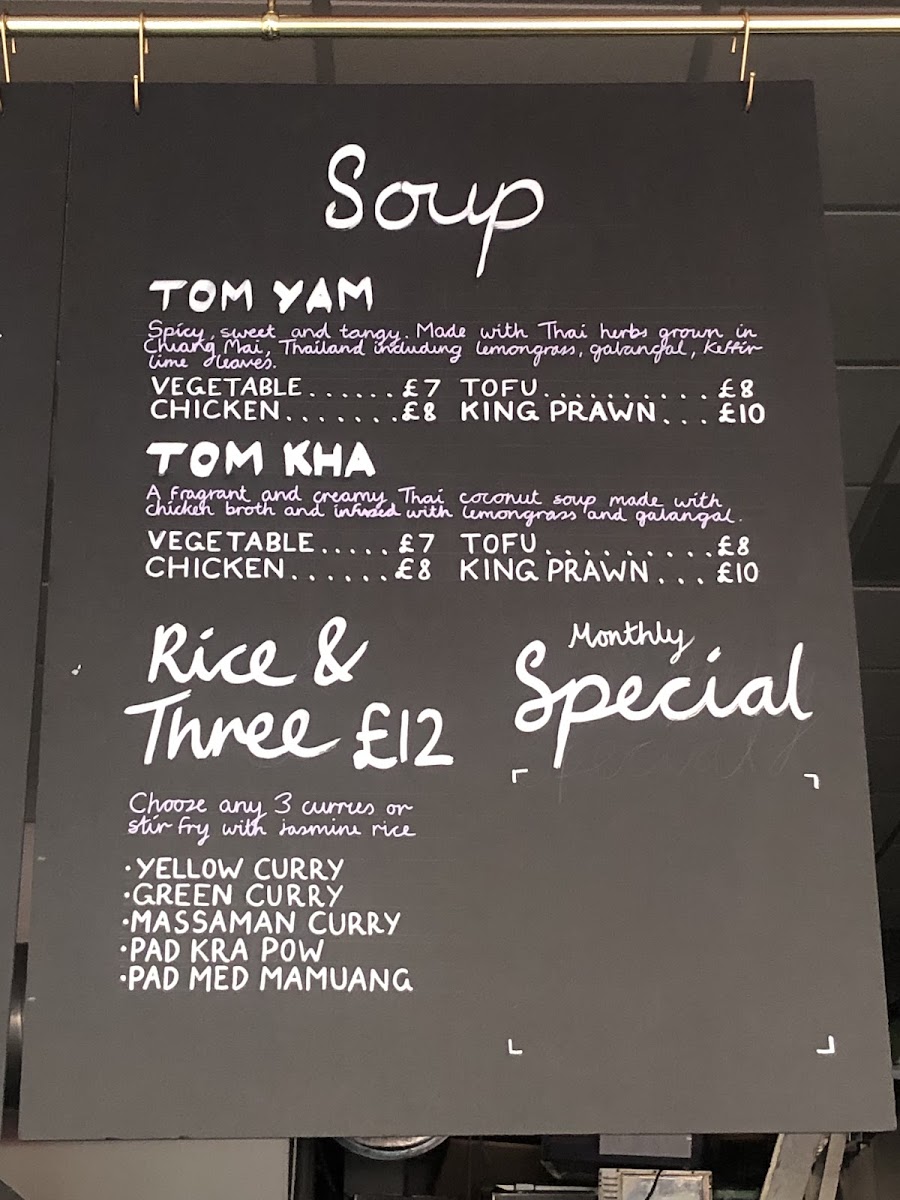 Soup
TOM YAM
Spicy, sweet and tangy. Made with Thai herbs grown in
Chiang Mai, Thailand including lemongrass, galangal, Keffir
lime leaves.
VEGETABLE......£7 TOFU..........£8
CHICKEN.......£8 KING PRAWN...£10
TOM KHA
A fragrant and creamy Thai coconut soup made with
chicken broth and infused with lemongrass and galangal.
VEGETABLE.....£7 TOFU..........£8
CHICKEN......£8 KING PRAWN...£10
Rice &
Three £12
Choose any 3 curries or
stir fry with jasmine rice
·YELLOW CURRY
·GREEN CURRY
·MASSAMAN CURRY
·PAD KRA POW
·PAD MED MAMUANG
Monthly
Special